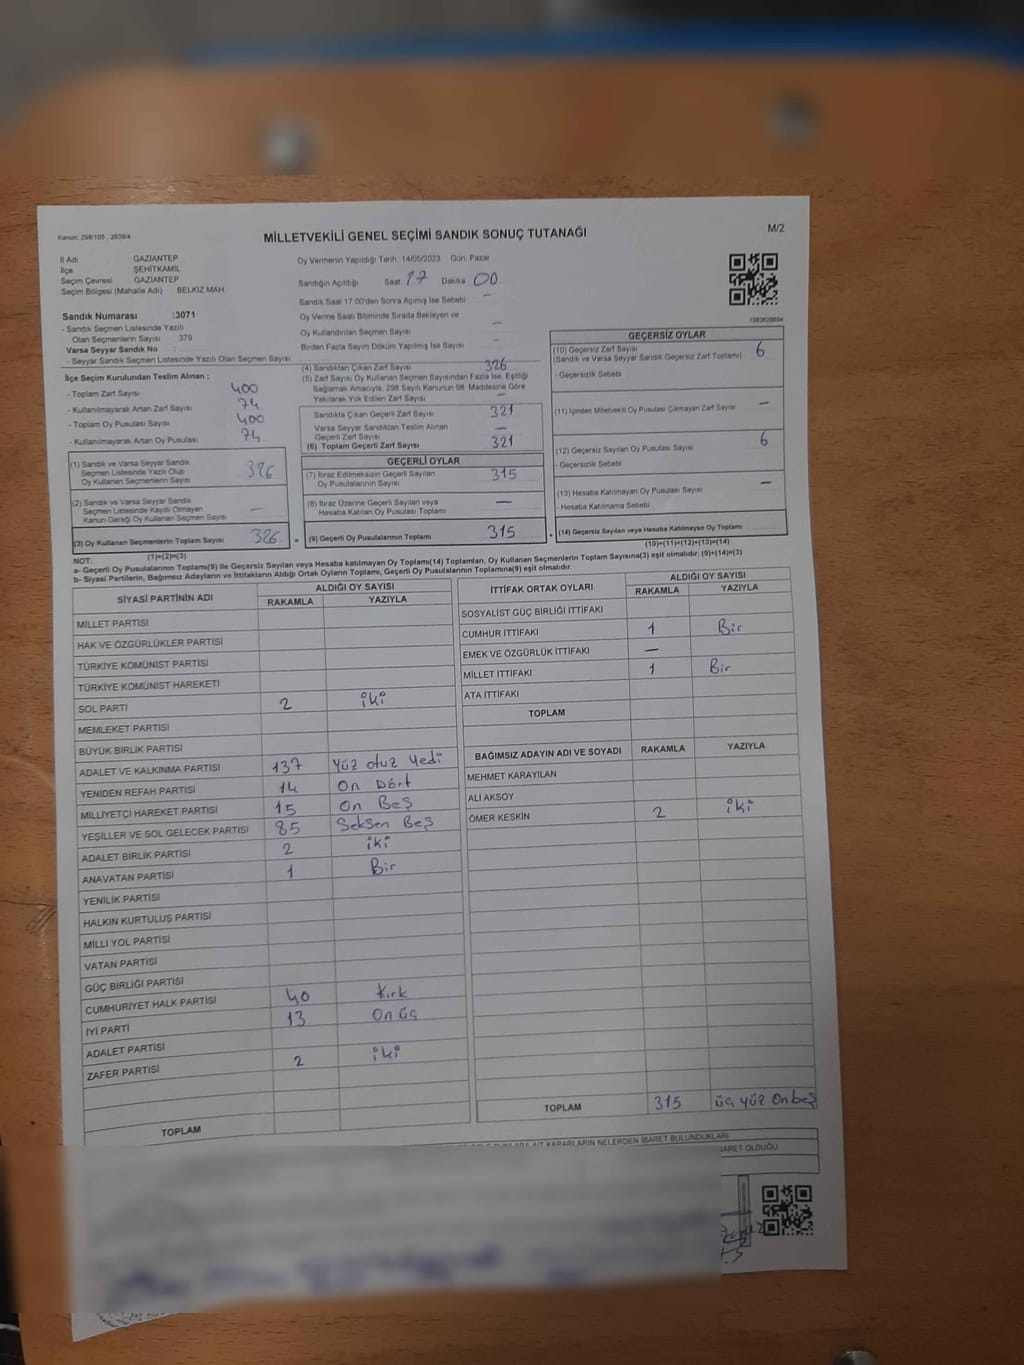 Kanun: 298/105 , 2839/4
MİLLETVEKİLİ GENEL SEÇİMİ SANDIK SONUÇ TUTANAĞI
M/2
İl Adı GAZİANTEP
İlçe ŞEHİTKAMİL
Seçim Çevresi GAZİANTEP
Seçim Bölgesi (Mahalle Adı) BELKIZ MAH
Sandık Numarası :3071
- Sandık Seçmen Listesinde Yazılı
Olan Seçmenlerin Sayısı 379
Varsa Seyyar Sandık No :
- Seyyar Sandık Seçmen Listesinde Yazılı Olan Seçmen Sayısı
Oy Vermenin Yapıldığı Tarih 14/05/2023 Gün Pazar
Sandığın Açıldığı Saat 17 Dakika 00
Sandık Saat 17.00'den Sonra Açılmış İse Sebebi —
Oy Verme Saati Bitiminde Sırada Bekleyen ve
Oy Kullandırılan Seçmen Sayısı —
Birden Fazla Sayım Döküm Yapılmış İse Sayısı —
İlçe Seçim Kurulundan Teslim Alınan :
- Toplam Zarf Sayısı 400
- Kullanılmayarak Artan Zarf Sayısı 74
- Toplam Oy Pusulası Sayısı 400
- Kullanılmayarak Artan Oy Pusulası 74
(1) Sandık ve Varsa Seyyar Sandık
Seçmen Listesinde Yazılı Olup
Oy Kullanan Seçmenlerin Sayısı 326
(2) Sandık ve Varsa Seyyar Sandık
Seçmen Listesinde Kayıtlı Olmayan
Kanun Gereği Oy Kullanan Seçmen Sayısı —
(3) Oy Kullanan Seçmenlerin Toplam Sayısı 326
(1)+(2)=(3)
(4) Sandıktan Çıkan Zarf Sayısı 326
(5) Zarf Sayısı Oy Kullanan Seçmen Sayısından Fazla İse, Eşitliği
Sağlamak Amacıyla, 298 Sayılı Kanunun 98. Maddesine Göre
Yakılarak Yok Edilen Zarf Sayısı —
Sandıkta Çıkan Geçerli Zarf Sayısı 321
Varsa Seyyar Sandıktan Teslim Alınan
Geçerli Zarf Sayısı —
(6) Toplam Geçerli Zarf Sayısı 321
GEÇERLİ OYLAR
(7) İtiraz Edilmeksizin Geçerli Sayılan
Oy Pusulalarının Sayısı 315
(8) İtiraz Üzerine Geçerli Sayılan veya
Hesaba Katılan Oy Pusulası Toplamı —
= (9) Geçerli Oy Pusulalarının Toplamı 315 +
GEÇERSİZ OYLAR
(10) Geçersiz Zarf Sayısı 6
(Sandık ve Varsa Seyyar Sandık Geçersiz Zarf Toplamı)
- Geçersizlik Sebebi
(11) İçinden Milletvekili Oy Pusulası Çıkmayan Zarf Sayısı —
(12) Geçersiz Sayılan Oy Pusulası Sayısı 6
- Geçersizlik Sebebi
(13) Hesaba Katılmayan Oy Pusulası Sayısı —
- Hesaba Katılmama Sebebi
(14) Geçersiz Sayılan veya Hesaba Katılmayan Oy Toplamı
(10)+(11)+(12)+(13)=(14)
NOT:
a- Geçerli Oy Pusulalarının Toplamı(9) ile Geçersiz Sayılan veya Hesaba katılmayan Oy Toplamı(14) Toplamları, Oy Kullanan Seçmenlerin Toplam Sayısına(3) eşit olmalıdır. (9)+(14)=(3)
b- Siyasi Partilerin, Bağımsız Adayların ve İttifakların Aldığı Ortak Oyların Toplamı, Geçerli Oy Pusulalarının Toplamına(9) eşit olmalıdır.
SİYASİ PARTİNİN ADI ALDIĞI OY SAYISI
RAKAMLA YAZIYLA
MİLLET PARTİSİ
HAK VE ÖZGÜRLÜKLER PARTİSİ
TÜRKİYE KOMÜNİST PARTİSİ
TÜRKİYE KOMÜNİST HAREKETİ
SOL PARTİ 2 iki
MEMLEKET PARTİSİ
BÜYÜK BİRLİK PARTİSİ
ADALET VE KALKINMA PARTİSİ 137 Yüz otuz Yedi
YENİDEN REFAH PARTİSİ 14 On Dört
MİLLİYETÇİ HAREKET PARTİSİ 15 On Beş
YEŞİLLER VE SOL GELECEK PARTİSİ 85 Seksen Beş
ADALET BİRLİK PARTİSİ 2 iki
ANAVATAN PARTİSİ 1 Bir
YENİLİK PARTİSİ
HALKIN KURTULUŞ PARTİSİ
MİLLİ YOL PARTİSİ
VATAN PARTİSİ
GÜÇ BİRLİĞİ PARTİSİ
CUMHURİYET HALK PARTİSİ 40 Kırk
İYİ PARTİ 13 On üç
ADALET PARTİSİ
ZAFER PARTİSİ 2 iki
TOPLAM
İTTİFAK ORTAK OYLARI ALDIĞI OY SAYISI
RAKAMLA YAZIYLA
SOSYALİST GÜÇ BİRLİĞİ İTTİFAKI
CUMHUR İTTİFAKI 1 Bir
EMEK VE ÖZGÜRLÜK İTTİFAKI —
MİLLET İTTİFAKI 1 Bir
ATA İTTİFAKI
TOPLAM
BAĞIMSIZ ADAYIN ADI VE SOYADI RAKAMLA YAZIYLA
MEHMET KARAYILAN
ALİ AKSOY
ÖMER KESKİN 2 iki
TOPLAM 315 üç yüz On beş
AİT KARARLARIN NELERDEN İBARET BULUNDUKLARI